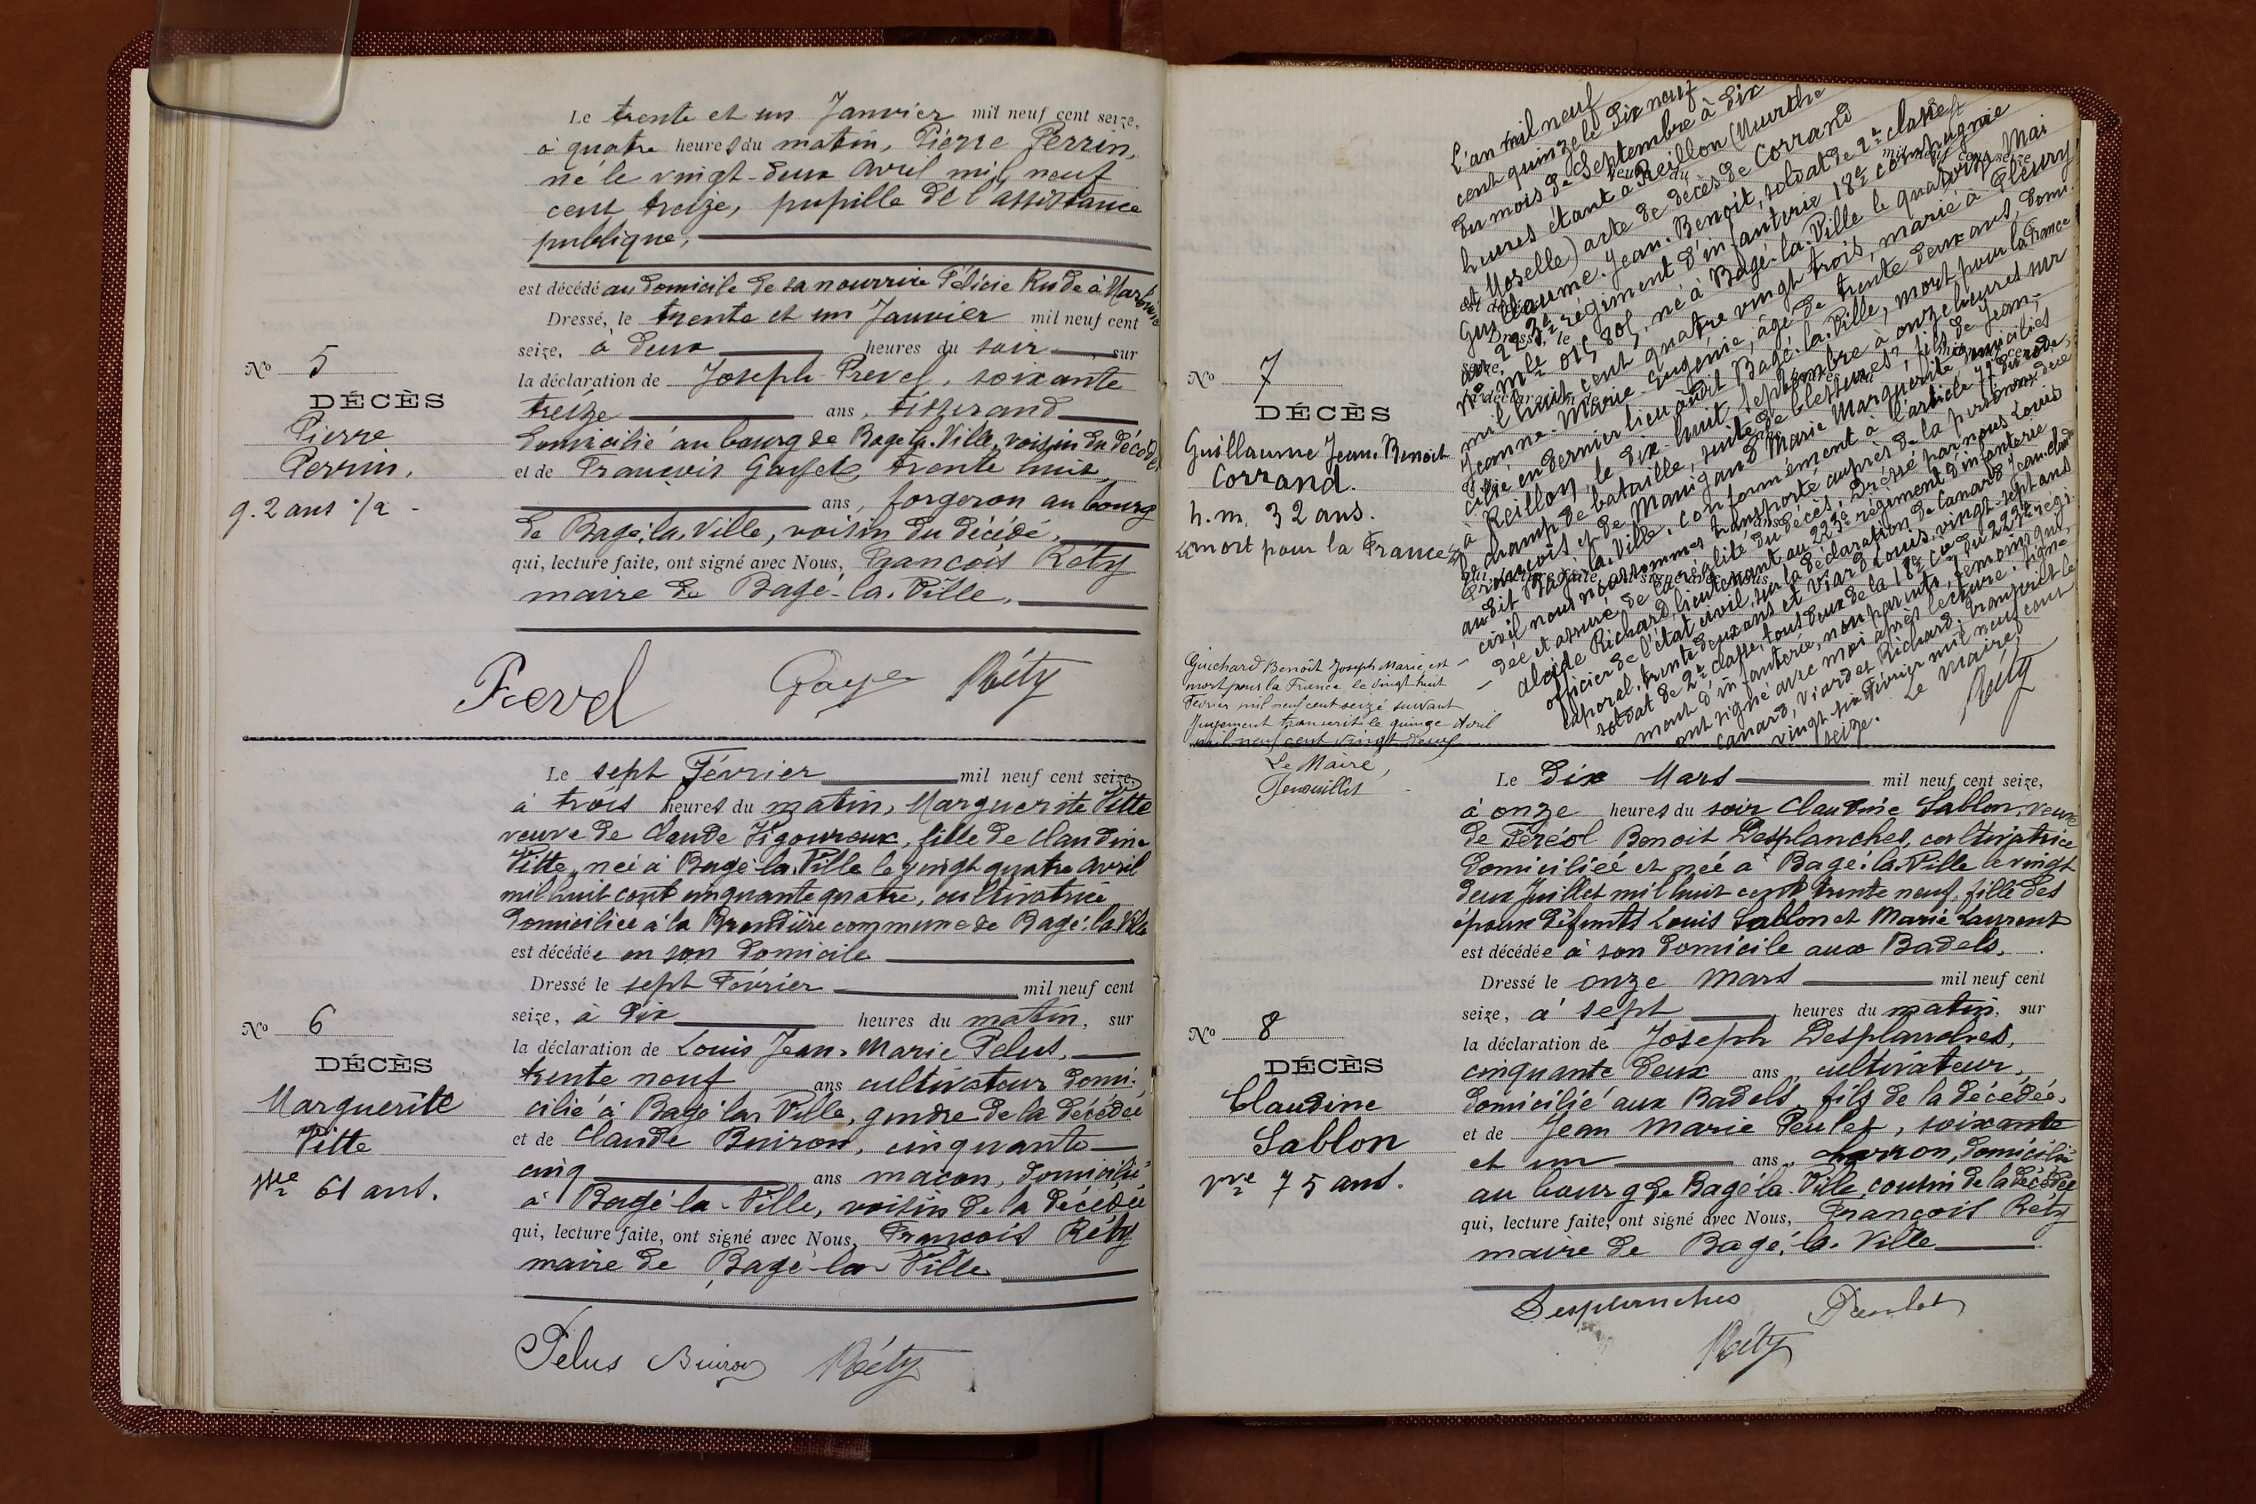 Le trente et un Janvier mil neuf cent seize,
à quatre heures du matin, Pierre Perrin,
né le vingt-deux Avril mil neuf
cent treize, pupille de l'assistance
publique,
est décédé au domicile de sa nourrice Félicie Rude à
Dressé, le trente et un Janvier mil neuf cent
seize, à deux heures du soir, sur
la déclaration de Joseph Prevel, soixante
treize ans, tisserand
domicilié au bourg de Bagé-la-Ville, voisin du décédé
et de François trente huit
ans, forgeron au bourg
de Bagé-la-Ville, voisin du décédé,
qui, lecture faite, ont signé avec Nous, François Réty
maire de Bagé-la-Ville.
Prevel Réty
No 5
DÉCÈS
Pierre
Perrin.
g. 2 ans 1/2
Le sept Février mil neuf cent seize,
à trois heures du matin, Marguerite Pitte
veuve de Claude Vigoureux, fille de Claudine
Pitte, née à Bagé-la-Ville le vingt quatre Avril
mil huit cent cinquante quatre, cultivatrice
domiciliée à la commune de Bagé-la-Ville
est décédée en son domicile
Dressé le sept Février mil neuf cent
seize, à dix heures du matin, sur
la déclaration de Louis Jean-Marie Pelus,
trente neuf ans cultivateur domi-
cilié à Bagé-la-Ville, gendre de la décédée
et de Claude Buiron, cinquante
cinq ans maçon, domicilié
à Bagé-la-Ville, voisin de la décédée
qui, lecture faite, ont signé avec Nous, François Réty
maire de Bagé-la-Ville
Pelus Buiron Réty
No 6
DÉCÈS
Marguerite
Pitte
vve 61 ans.
L'an mil neuf
cent quinze le dix neuf
du mois de Septembre à dix
heures étant à Reillon (Meurthe
et Moselle) acte de décès de Corrand
Guillaume-Jean-Benoit, soldat de 2e classe
au 223e régiment d'infanterie 18e compagnie
né à Bagé-la-Ville le quatorze Mai
mil huit cent quatre vingt trois, marié à Fleury
Jeanne-Marie-Eugénie, âgé de trente deux ans, domi-
cilié en dernier lieu audit Bagé-la-Ville, mort pour la France
à Reillon, le dix huit septembre à onze heures sur
le champ de bataille, suite de blessures, fils de Jean-
François et de Manigand Marie Marguerite, domiciliés
audit Bagé-la-Ville, conformément à l'article 77 du code
civil nous nous sommes transporté auprès de la personne décé-
dée et assuré de la réalité du décès, Dressé par nous Louis
Alcide Richard, lieutenant au 223e régiment d'infanterie
officier de l'état civil, sur la déclaration de Canard Jean-Claude
caporal, trente deux ans et Viard Louis, vingt-sept ans
soldat de 2e classe, tous deux de la 18e Cie du 223e régi-
ment d'infanterie, non parents, témoins qui
ont signé avec moi après lecture. Signé
Canard, Viard et Richard, transcrit le
vingt-six Février mil neuf cent
seize. Le Maire,
Réty
No 7
DÉCÈS
Guillaume Jean-Benoit
Corrand.
h. m. 32 ans.
«mort pour la France»
Guichard Benoît Joseph Marie, est
mort pour la France le vingt huit
Février mil neuf cent seize suivant
Jugement transcrit le quinze Avril
mil neuf cent vingt deux
Le Maire,
Le Dix Mars mil neuf cent seize,
à onze heures du soir Claudine Sablon, veuve
de Féréol Benoit Desplanches, cultivatrice
domiciliée et née à Bagé-la-Ville le vingt
deux Juillet mil huit cent trente neuf, fille des
époux défunts Louis Sablon et Marie Laurent
est décédée à son domicile aux Badels.
Dressé le onze Mars mil neuf cent
seize, à sept heures du matin, sur
la déclaration de Joseph Desplanches,
cinquante deux ans, cultivateur,
domicilié aux Badels, fils de la décédée.
et de Jean Marie Peulet, soixante
et un ans, charron, domicilié
au bourg de Bagé-la-Ville, cousin de la décédée
qui, lecture faite, ont signé avec Nous, François Réty
maire de Bagé-la-Ville
Desplanches Peulet
Réty
No 8
DÉCÈS
Claudine
Sablon
vve 75 ans.